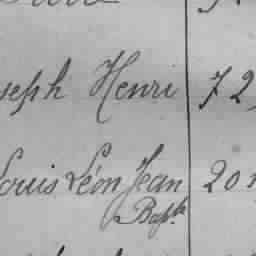 seph Henri 72
Louis Léon Jean 20
Bapt.